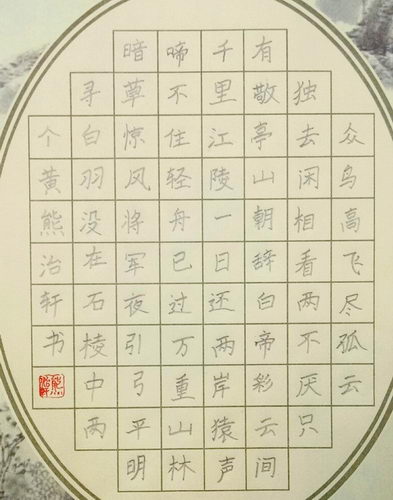 众鸟高飞尽孤云
独去闲相看两不厌只
有敬亭山朝辞白帝彩云间
千里江陵一日还两岸猿声
啼不住轻舟已过万重山林
暗草惊风将军夜引弓平明
寻白羽没在石棱中两
个黄熊治轩书